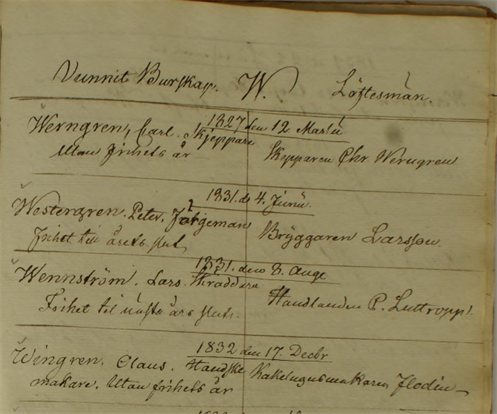 Vunnit Burskap. W. Löftesmän.
1827 den 12 Martii
Werngren, Carl. Skeppare Skepparen Chr Werngren
Utan frihets år
1831. d. 4. Junii.
Westergren. Peter. Färgeman Bryggaren Larsson.
Frihet til årets slut.
1831. den 8. Aug.
Wennström. Lars. Skräddare Handlanden P. Luttropp.
Frihet til näste års slut.
1832 den 17. Decbr
Wengren. Claus. Handsk Kakelugnsmakaren Flodin
makare. Utan frihets år